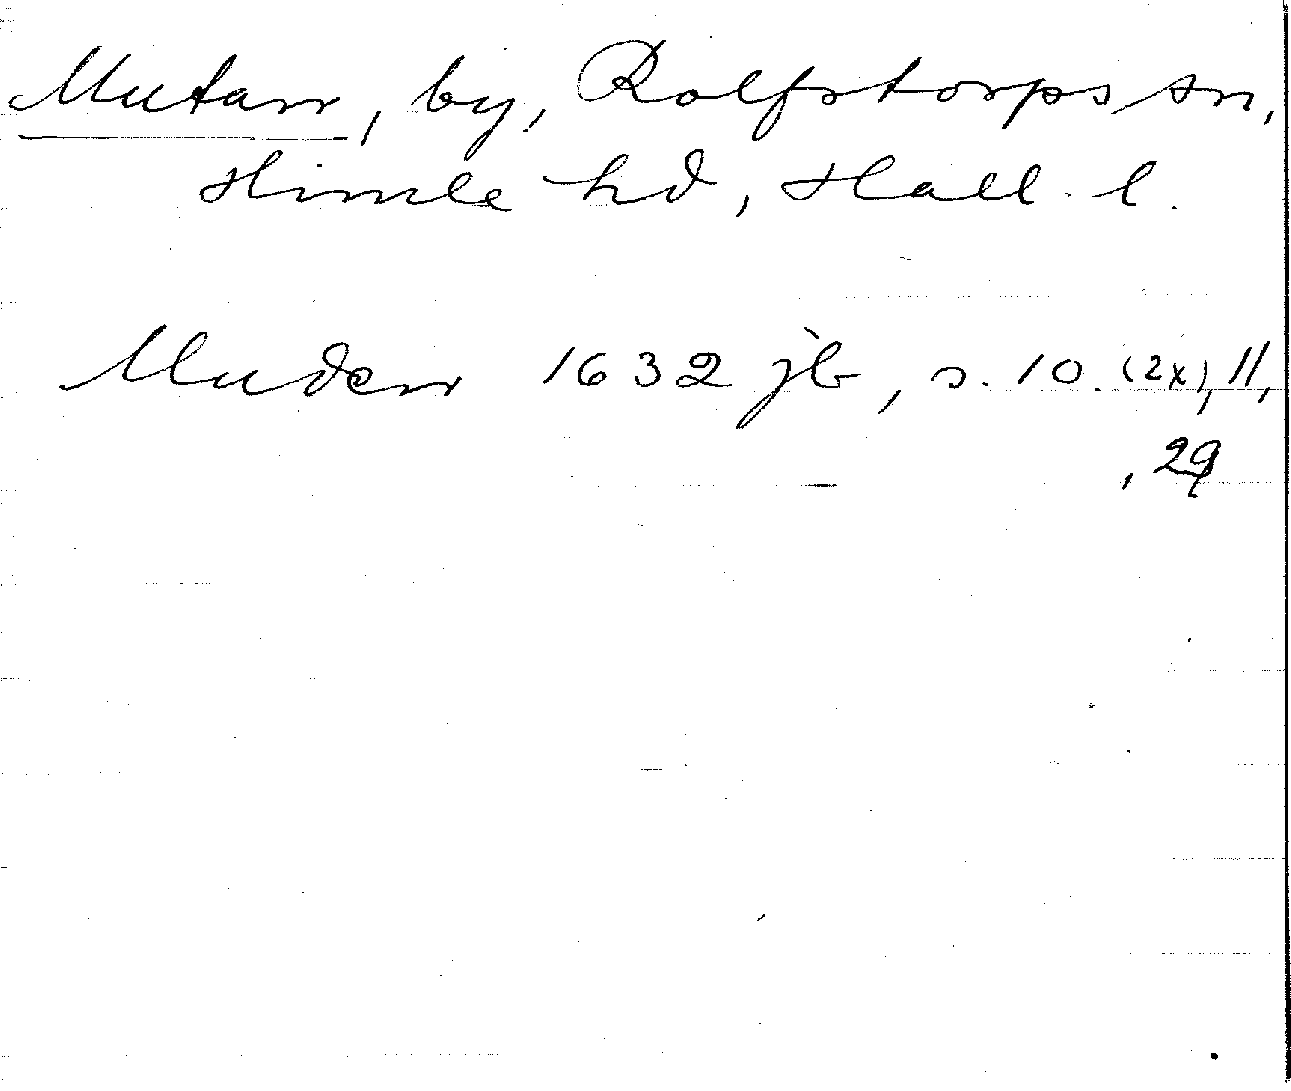 Mutan, by, Rolfstorps sn,
Himle hd, Hall. l.
Muden 1632 jb, s. 10. (2x), 11,
, 29